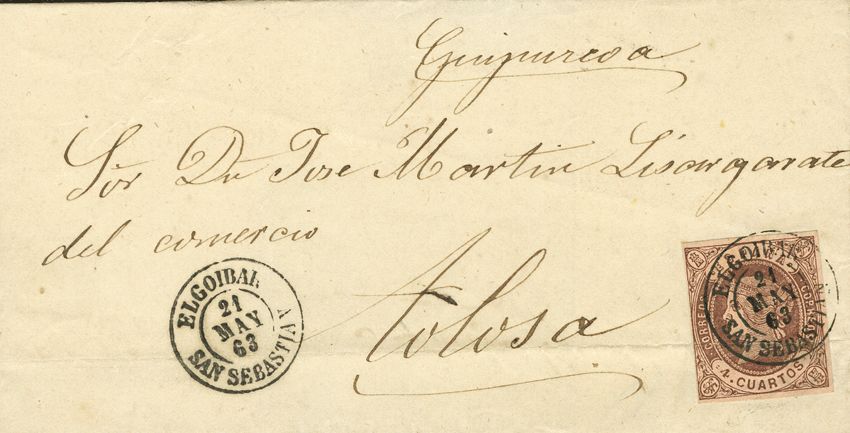 Guipurcoa
Sor Dn Jose Martin Lisargarate
del comercio
Tolosa
ELGOIBAR
21
MAY
63
SAN SEBASTIAN
ELGOIBAR
21
MAY
63
SAN SEBASTIAN
CORREOS
4. CUARTOS